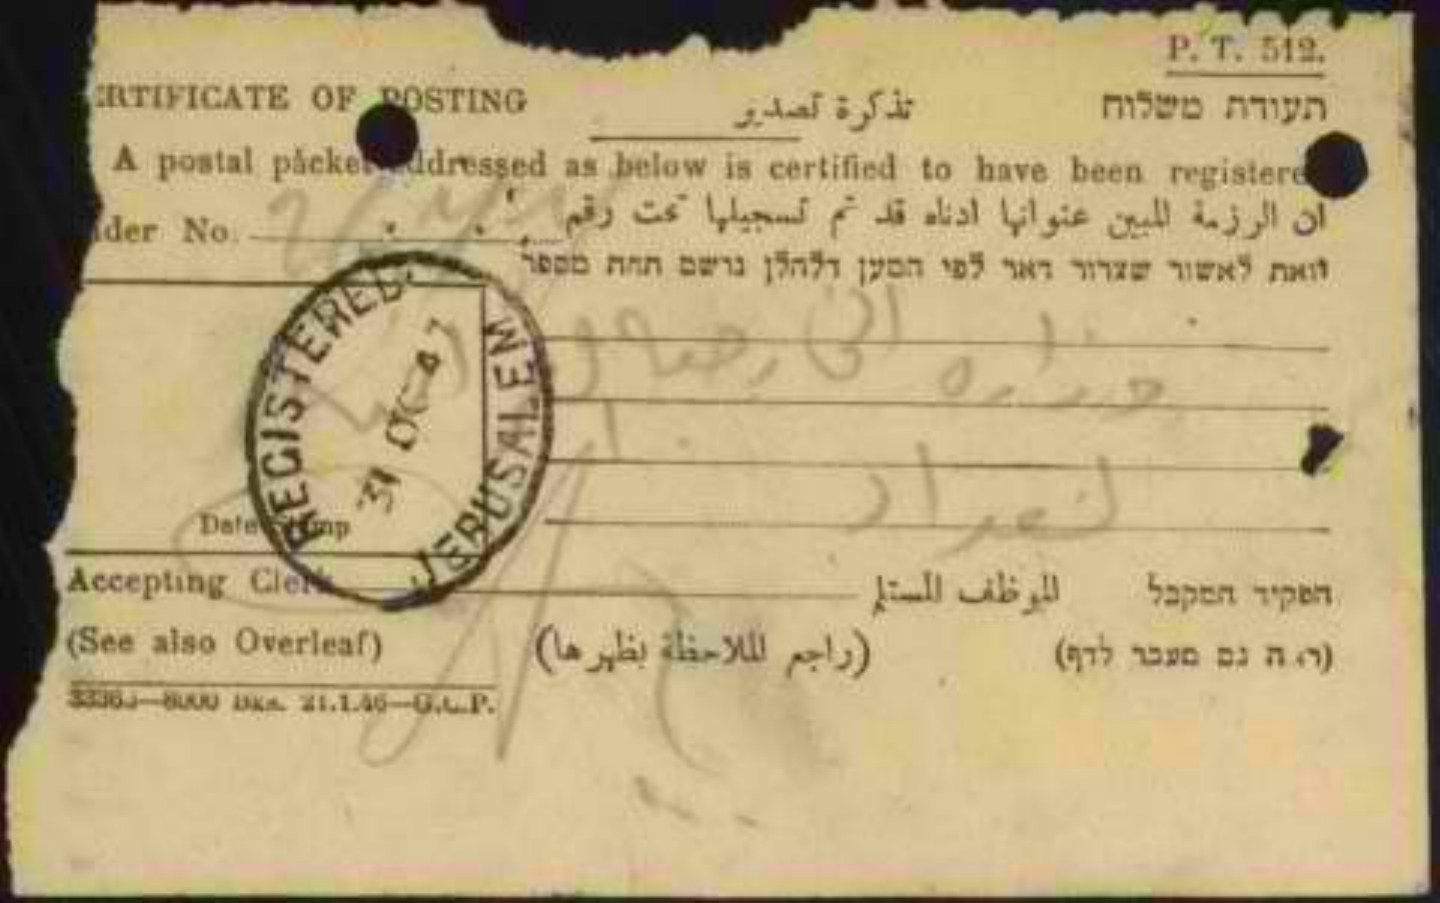 P. T. 512.
ERTIFICATE OF POSTING تذكرة تصدير תעודת משלוח
A postal packet addressed as below is certified to have been registere
nder No.
ان الرزمة المبين عنوانها ادناه قد تم تسجيلها تحت رقم
זואת לאשור שצרור דאר לפי המען דלהלן נרשם תחת מספר
REGISTERED
JERUSALEM
31 OC 47
بغداد
Date Stamp
Accepting Clerk الموظف المستلم הפקיד המקבל
(See also Overleaf) (راجع الملاحظة بظهرها) (ר׳ה גם מעבר לדף)
8000 Bks. 21.1.46—G.C.P.